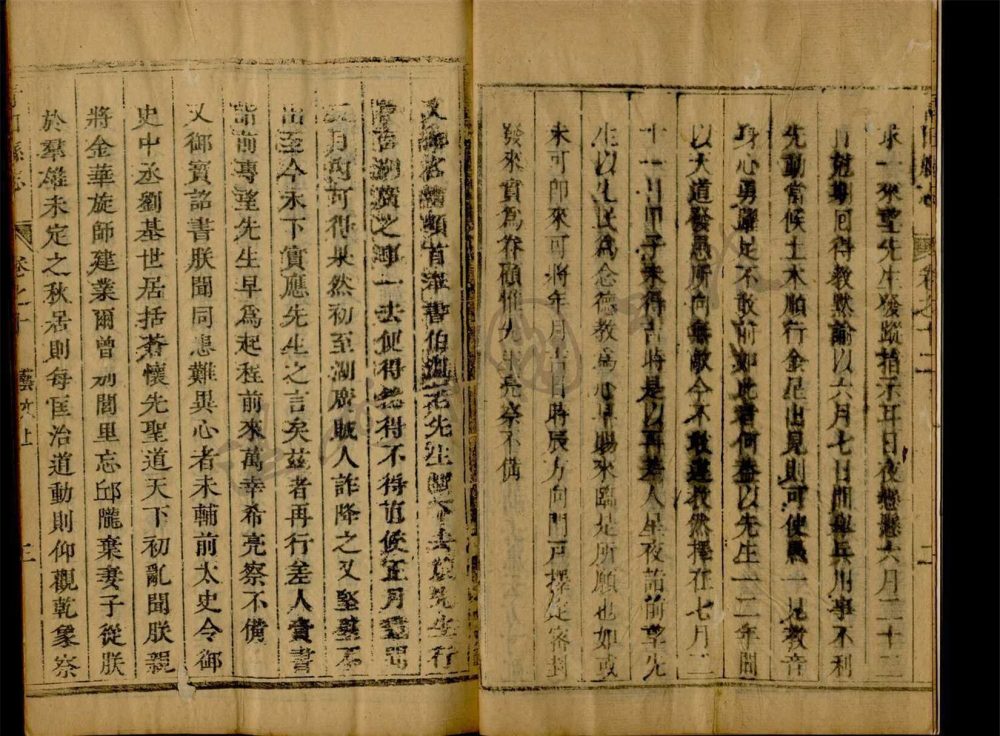 青田縣志 卷之十二 二
求一來望先生發蹤指示耳日夜懸懸六月二十二
日尅期回得教默諭以六月七日間舉兵用事不利
先動當候土木順行金星出見則可使愚一見教音
身心勇躍足不敢前如此者何蓋以先生一二年間
以天道發愚所向無敵今不敢違教然擇在七月二
十一日甲子未得吉時是以再差人星夜詣前望先
生以生民爲念德教爲心早賜來臨是所願也如或
未可即來可將年月吉日時辰方向門戶擇定密封
發來實爲眷顧惟先生亮察不備
又御名頓首奉書伯溫老先生閣下去歲先生行
嘗言湖廣之事一去便得然得不得直候正月盡間
二月內可得果然初至湖廣賊人詐降之又堅壘不
出至今永下實應先生之言矣茲者再行差人齎書
詣前專望先生早爲起程前來萬幸希亮察不備
又御寶詔書朕聞同患難異心者未輔前太史令御
史中丞劉基世居括蒼懷先聖道天下初亂聞朕親
將金華旋師建業爾曾別閭里忘邱隴棄妻子從朕
於羣雄未定之秋居則每匡治道動則仰觀乾象察
青田縣志 卷之十 藝文上 三